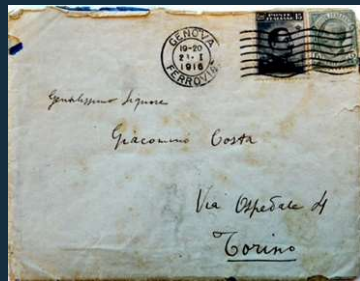 GENOVA
19-20
21·I
1916
FERROVIA
POSTE
ITALIANE
15
Gentilissimo Signore
Giacomino Costa
Via Ospedale 4
Torino